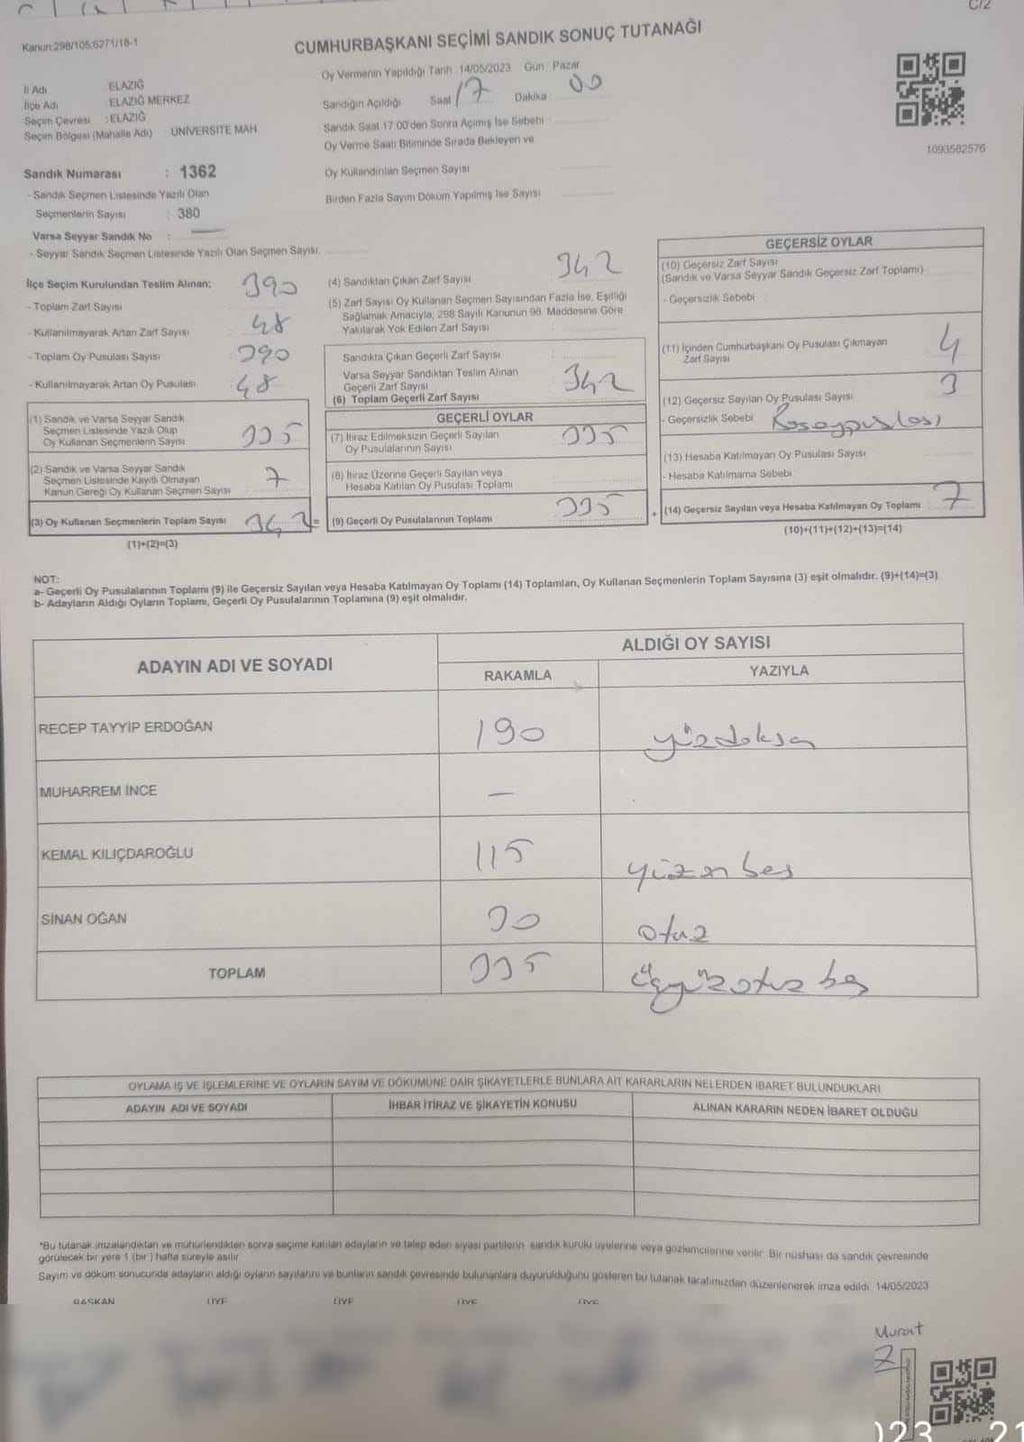 C/2
Kanun:298/105;6271/18-1
CUMHURBAŞKANI SEÇİMİ SANDIK SONUÇ TUTANAĞI
İl Adı ELAZIĞ
İlçe Adı ELAZIĞ MERKEZ
Seçim Çevresi :ELAZIĞ
Seçim Bölgesi (Mahalle Adı) UNIVERSITE MAH.
Sandık Numarası : 1362
- Sandık Seçmen Listesinde Yazılı Olan
Seçmenlerin Sayısı : 380
Varsa Seyyar Sandık No :
- Seyyar Sandık Seçmen Listesinde Yazılı Olan Seçmen Sayısı:
Oy Vermenin Yapıldığı Tarih :14/05/2023 Gün: Pazar
Sandığın Açıldığı Saat 17 Dakika 00
Sandık Saat 17.00'den Sonra Açımış İse Sebebi
Oy Verme Saati Bitiminde Sırada Bekleyen ve
Oy Kullandırılan Seçmen Sayısı
Birden Fazla Sayım Döküm Yapılmış İse Sayısı
1093582576
İlçe Seçim Kurulundan Teslim Alınan: 390
- Toplam Zarf Sayısı
- Kullanılmayarak Artan Zarf Sayısı 48
- Toplam Oy Pusulası Sayısı 390
- Kullanılmayarak Artan Oy Pusulası 48
(1) Sandık ve Varsa Seyyar Sandık
Seçmen Listesinde Yazılı Olup
Oy Kullanan Seçmenlerin Sayısı 335
(2) Sandık ve Varsa Seyyar Sandık
Seçmen Listesinde Kayıtlı Olmayan
Kanun Gereği Oy Kullanan Seçmen Sayısı 7
(3) Oy Kullanan Seçmenlerin Toplam Sayısı 342 =
(1)+(2)=(3)
(4) Sandıktan Çıkan Zarf Sayısı 342
(5) Zarf Sayısı Oy Kullanan Seçmen Sayısından Fazla İse, Eşitliği
Sağlamak Amacıyla, 298 Sayılı Kanunun 98. Maddesine Göre
Yakılarak Yok Edilen Zarf Sayısı
Sandıkta Çıkan Geçerli Zarf Sayısı
Varsa Seyyar Sandıktan Teslim Alınan
Geçerli Zarf Sayısı 342
(6) Toplam Geçerli Zarf Sayısı
GEÇERLİ OYLAR
(7) İtiraz Edilmeksizin Geçerli Sayılan
Oy Pusulalarının Sayısı 335
(8) İtiraz Üzerine Geçerli Sayılan veya
Hesaba Katılan Oy Pusulası Toplamı
(9) Geçerli Oy Pusulalarının Toplamı 335 +
GEÇERSİZ OYLAR
(10) Geçersiz Zarf Sayısı
(Sandık ve Varsa Seyyar Sandık Geçersiz Zarf Toplamı)
- Geçersizlik Sebebi
(11) İçinden Cumhurbaşkanı Oy Pusulası Çıkmayan
Zarf Sayısı 4
(12) Geçersiz Sayılan Oy Pusulası Sayısı 3
- Geçersizlik Sebebi
(13) Hesaba Katılmayan Oy Pusulası Sayısı
- Hesaba Katılmama Sebebi
(14) Geçersiz Sayılan veya Hesaba Katılmayan Oy Toplamı 7
(10)+(11)+(12)+(13)=(14)
NOT:
a- Geçerli Oy Pusulalarının Toplamı (9) ile Geçersiz Sayılan veya Hesaba Katılmayan Oy Toplamı (14) Toplamları, Oy Kullanan Seçmenlerin Toplam Sayısına (3) eşit olmalıdır. (9)+(14)=(3)
b- Adayların Aldığı Oyların Toplamı, Geçerli Oy Pusulalarının Toplamına (9) eşit olmalıdır.
ADAYIN ADI VE SOYADI
ALDIĞI OY SAYISI
RAKAMLA YAZIYLA
RECEP TAYYİP ERDOĞAN 190 yüzdoksan
MUHARREM İNCE —
KEMAL KILIÇDAROĞLU 115 yüzonbeş
SİNAN OĞAN 30 otuz
TOPLAM 335 üçyüzotuz beş
OYLAMA İŞ VE İŞLEMLERİNE VE OYLARIN SAYIM VE DÖKÜMÜNE DAİR ŞİKAYETLERLE BUNLARA AİT KARARLARIN NELERDEN İBARET BULUNDUKLARI
ADAYIN ADI VE SOYADI İHBAR İTİRAZ VE ŞİKAYETİN KONUSU ALINAN KARARIN NEDEN İBARET OLDUĞU
*Bu tutanak imzalandıktan ve mühürlendikten sonra seçime katılan adayların ve talep eden siyasi partilerin sandık kurulu üyelerine veya gözlemcilerine verilir. Bir nüshası da sandık çevresinde
görülecek bir yere 1 (bir) hafta süreyle asılır.
Sayım ve döküm sonucunda adayların aldığı oyların sayılarını ve bunların sandık çevresinde bulunanlara duyurulduğunu gösteren bu tutanak tarafımızdan düzenlenerek imza edildi. 14/05/2023
BAŞKAN ÜYE ÜYE ÜYE ÜYE
Murat